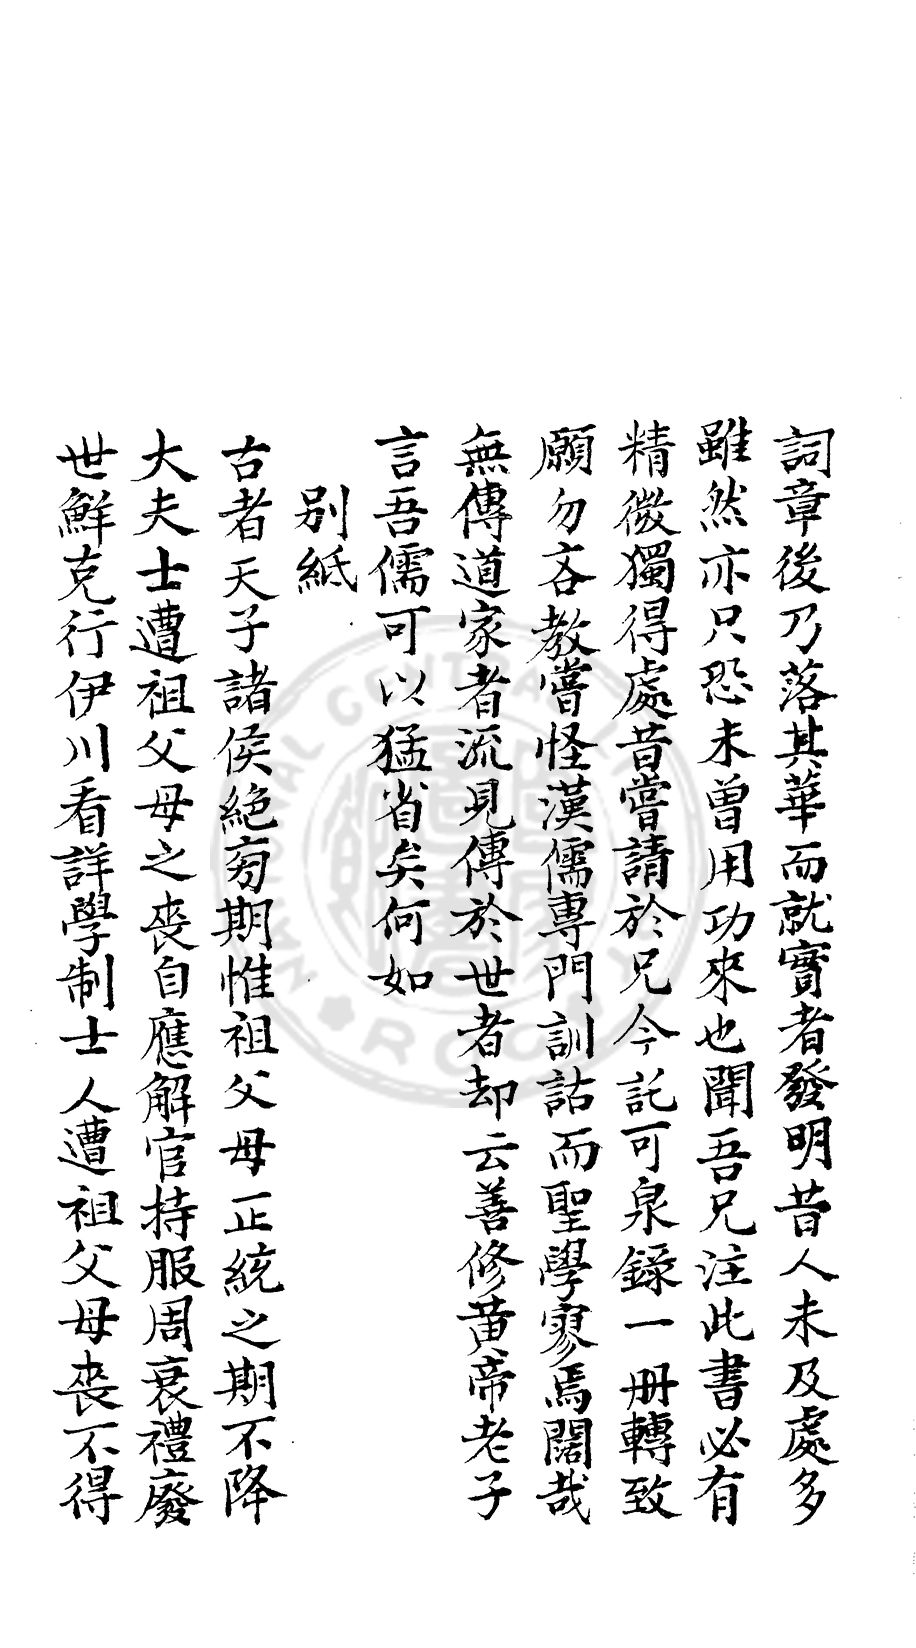 詞章後乃落其華而就實者發明昔人未及處多
雖然亦只恐未曾用功來也聞吾兄注此書必有
精微獨得處昔嘗請於兄今託可泉錄一冊轉致
願勿吝教嘗怪漢儒專門訓詁而聖學寥焉闊哉
無傳道家者流見傳於世者却云善修黃帝老子
言吾儒可以猛省矣何如
別紙
古者天子諸侯絕旁期惟祖父母正統之期不降
大夫士遭祖父母之喪自應解官持服周衰禮廢
世鮮克行伊川看詳學制士人遭祖父母喪不得
NATIONAL CENTRAL
R.O.C